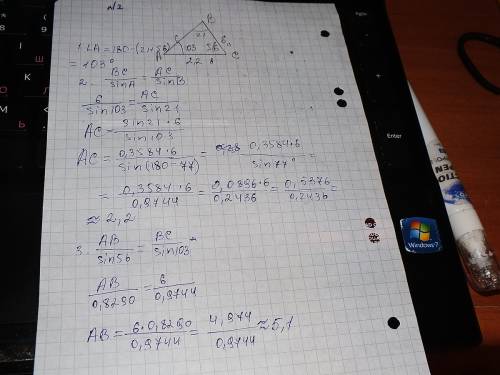 №2
B
21
c 6
A 103 56 C
2,2 в
1. ∠A = 180 - (21+56)
= 103°
2. BC/sinA = AC/sinB
6/sin103 = AC/sin21
AC = sin21 · 6/sin103
AC = 0,3584 · 6/sin(180-77) = 0,3584 · 6/sin77° =
= 0,3584 · 6/0,9744 = 0,0896 · 6/0,2436 = 0,5376/0,2436 =
≈ 2,2
3. AB/sin56 = BC/sin103°
AB/0,8290 = 6/0,9744
AB = 6 · 0,8290/0,9744 = 4,974/0,9744 ≈ 5,1
Enter
Windows 7